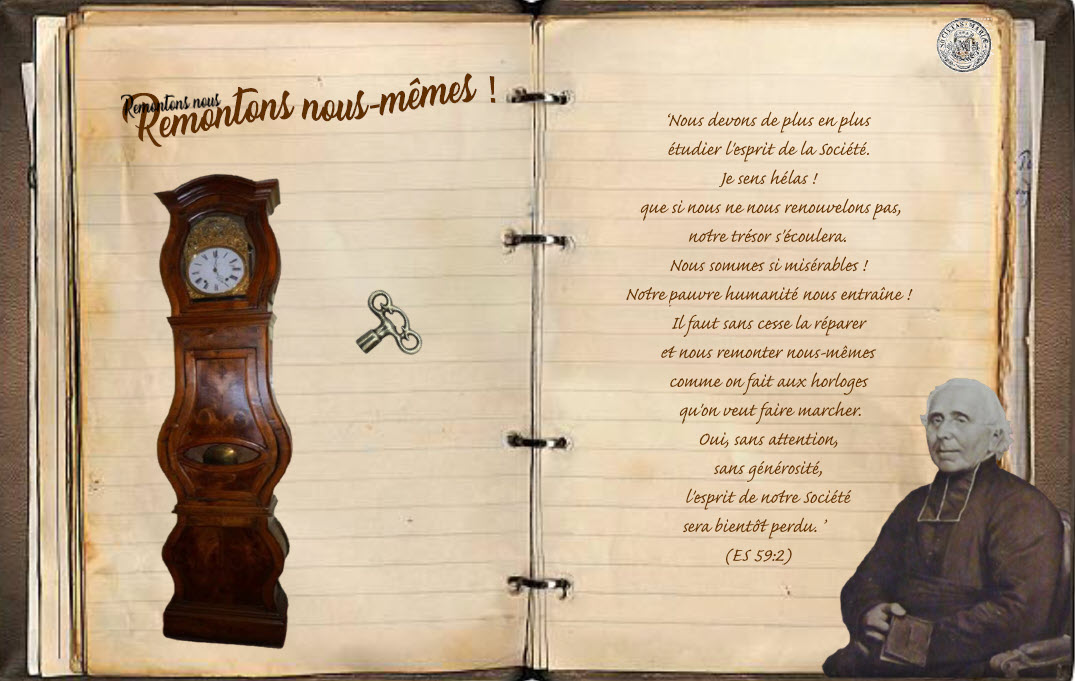 Remontons nous
Remontons nous-mêmes !
‘Nous devons de plus en plus
étudier l’esprit de la Société.
Je sens hélas !
que si nous ne nous renouvelons pas,
notre trésor s’écoulera.
Nous sommes si misérables !
Notre pauvre humanité nous entraîne !
Il faut sans cesse la réparer
et nous remonter nous-mêmes
comme on fait aux horloges
qu’on veut faire marcher.
Oui, sans attention,
sans générosité,
l’esprit de notre Société
sera bientôt perdu. ’
(ES 59:2)